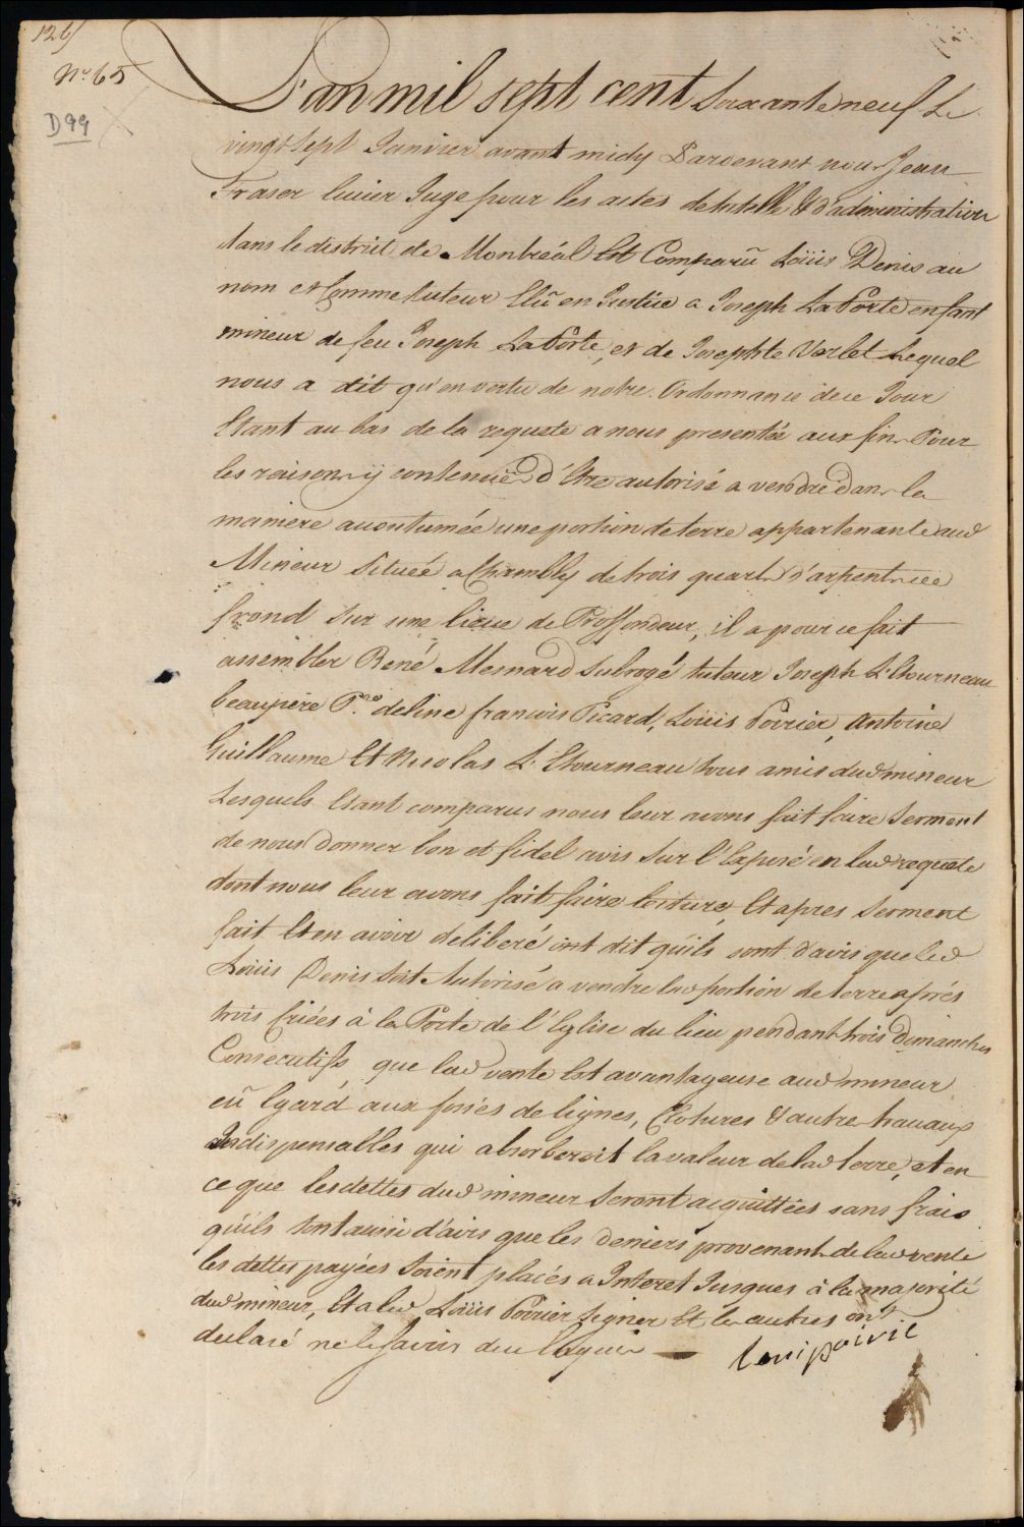 126
No. 65
D 99
L'an mil sept cent Soixante neuf Le
vingt Sept Janvier avant midy Pardevant nous Jean
Fraser Juge pour les actes de tutelle & d'administration
dans le district de Montreál Est Comparü Loüis Denis au
nom et Comme tuteur Elû en Justice a Joseph LaPorte enfant
mineur de feu Joseph LaPorte, et de Josephte Varlet Lequel
nous a dit qu'en vertu de notre Ordonnance de ce Jour
Etant au bas de la requete a nous presentée aux fins Pour
les raisons ÿ contenuës d'Etre autorisé a vendre dans la
maniere accoutumée une portion de terre appartenante aud
Mineur Située a Chambly de trois quarts d'arpents de
frond Sur une lieue de Proffondeur, il a pour ce fait
assembler René Mesnard Subrogé tuteur Joseph L'Etourneau
beaupere françois Picard, Loüis Poirier, Antoine
Guillaume Et Nicolas L'Etourneau tous amis dud mineur
Lesquels Etant comparus nous leur avons fait faire Serment
de nous donner bon et fidel avis Sur l'Exposé en lad requete
dont nous leur avons fait faire lecture, Et apres Serment
fait Et en avoir deliberé ont dit qu'ils sont d'avis que led
Loüis Denis Soit Autorisé a vendre lad portion de terre aprés
trois Criées à la Porte de l'Eglise du lieu pendant trois Dimanches
Consecutifs, que lad vente Est avantageuse aud mineur
eü Egard aux fossés de lignes, Clotures & autres travaux
Indispensables qui absorberoit la valeur de lad terre, et en
ce que les dettes dud mineur Seront acquittées sans frais
qu'ils sont aussi d'avis que les deniers provenants de lad vente
les dettes payées Soient placés a Interet Jusques à la majorité
dud mineur, Et a led Loüis Poirier Signer Et les autres ont
declaré ne le Savoir de ce Enquis
Loui poirie